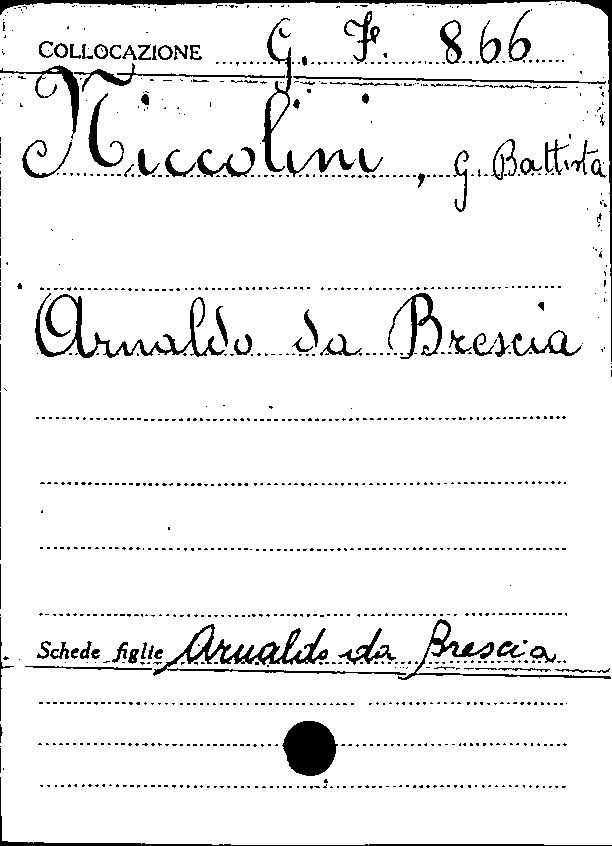 COLLOCAZIONE G. F. 866
Niccolini, G. Battista
Arnaldo da Brescia
Schede figlie Arnaldo da Brescia